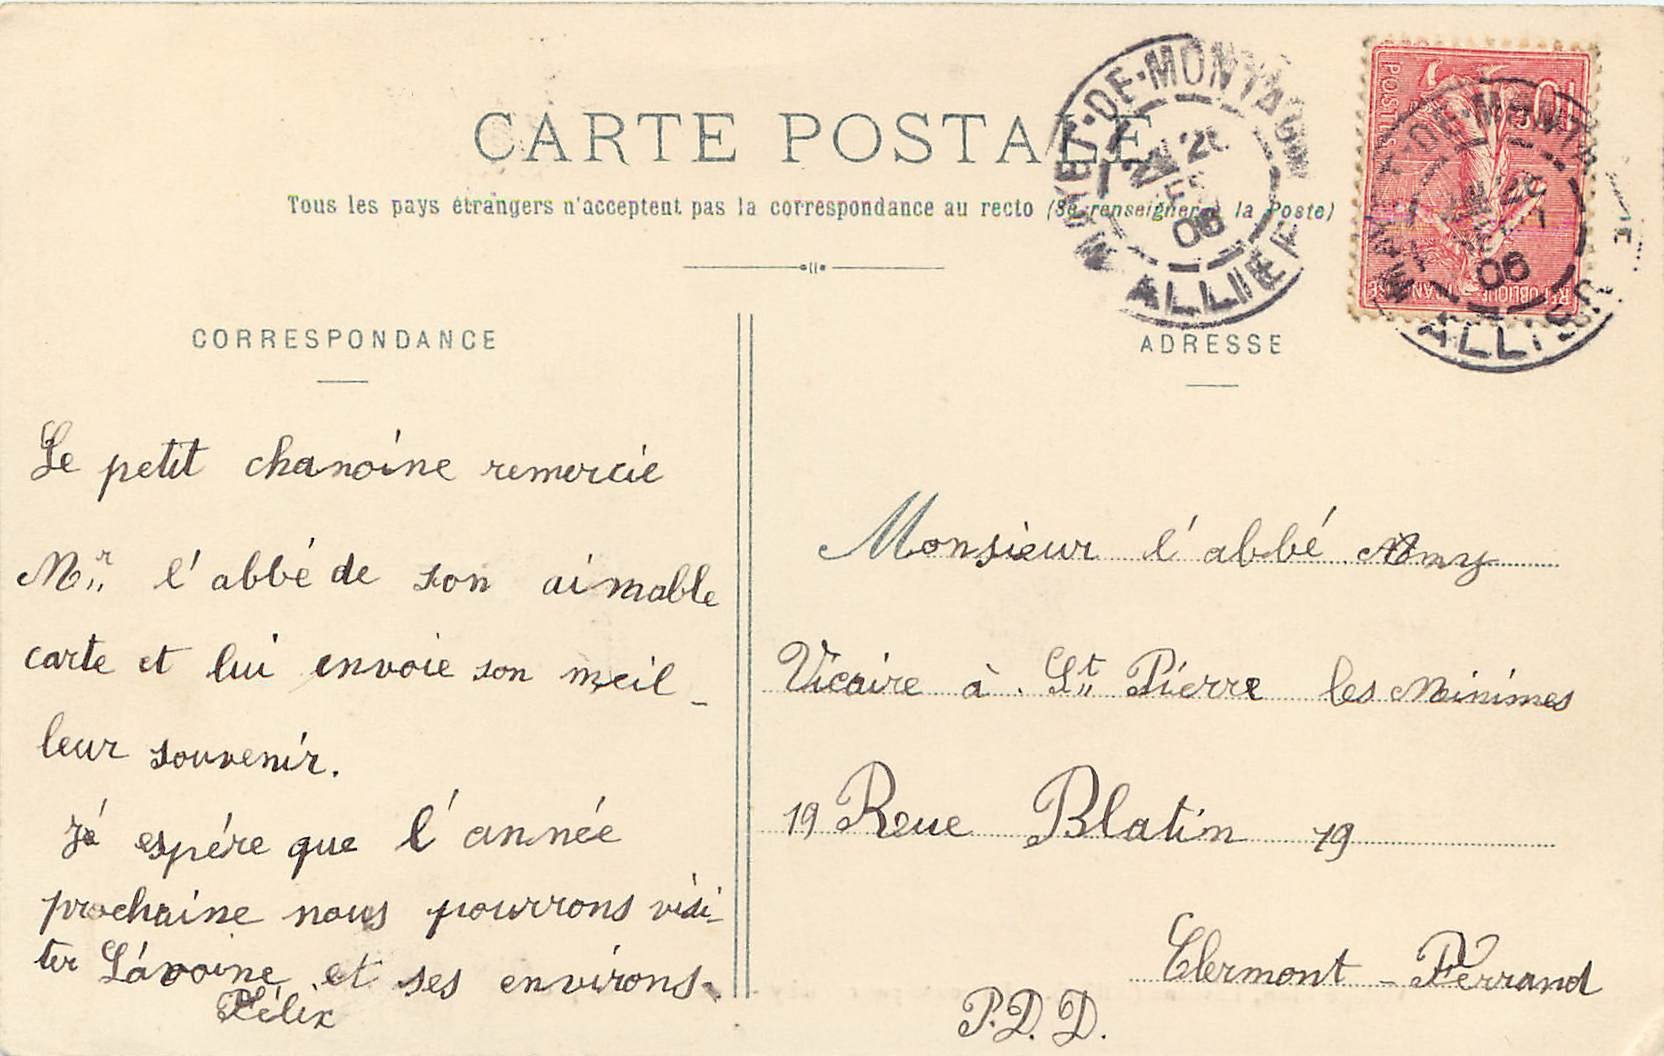 CARTE POSTALE
Tous les pays étrangers n'acceptent pas la correspondance au recto (Se renseigner à la Poste)
CORRESPONDANCE
Le petit chanoine remercie
Mr l'abbé de son aimable
carte et lui envoie son meil-
leur souvenir.
J'é espére que l'année
prochaine nous pourrons visi-
ter Lavoine et ses environs.
Félix
ADRESSE
Monsieur l'abbé Amy
Vicaire à St Pierre les Minimes
19 Rue Blatin 19
Clermont-Ferrand
P.D.D.
POSTES
10c
REPUBLIQUE FRANÇAISE
MAYET-DE-MONTAGNE
06
ALLIER
06
ALLIER